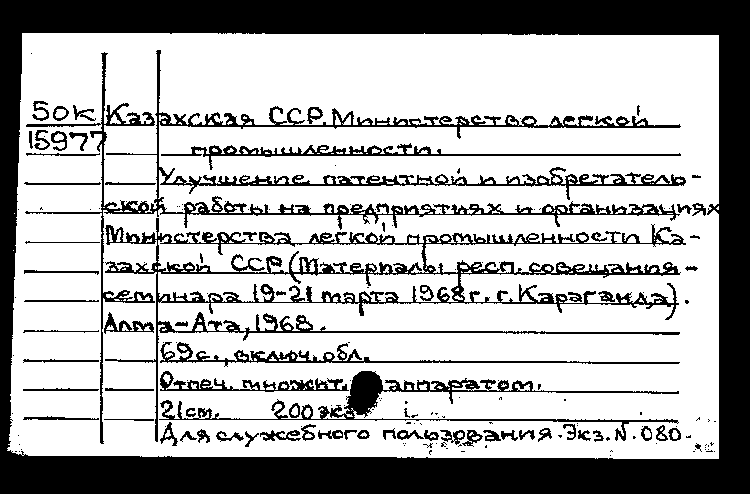 50К Казахская ССР. Министерство легкой
15977 промышленности.
Улучшение патентной и изобретатель-
ской работы на предприятиях и организациях
Министерства легкой промышленности Ка-
захской ССР. (Материалы респ. совещания-
семинара 19-21 марта 1968 г. г. Караганда).
Алма-Ата, 1968.
69 с., включ. обл.
Отпеч. множит. аппаратом.
21 см. 200 экз
Для служебного пользования. Экз. N. 080.